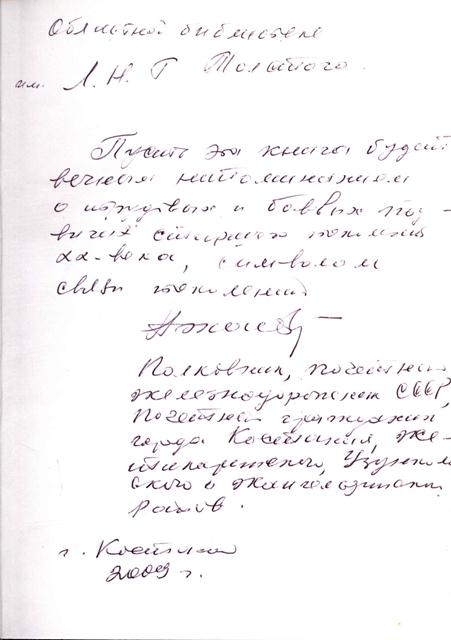 Областной библиотеке
им. Л. Н. Толстого.
Пусть эта книга будет
вечным напоминанием
о трудовых и боевых под-
вигах старшего поколения
ХХ-века, символом
связи поколений
Полковник, почетный
железнодорожник СССР,
Почетный гражданин
города Костаная, Же-
тикаринского, Узунколь-
ского и Жангельдинского
районов.
г. Костанай
2009 г.